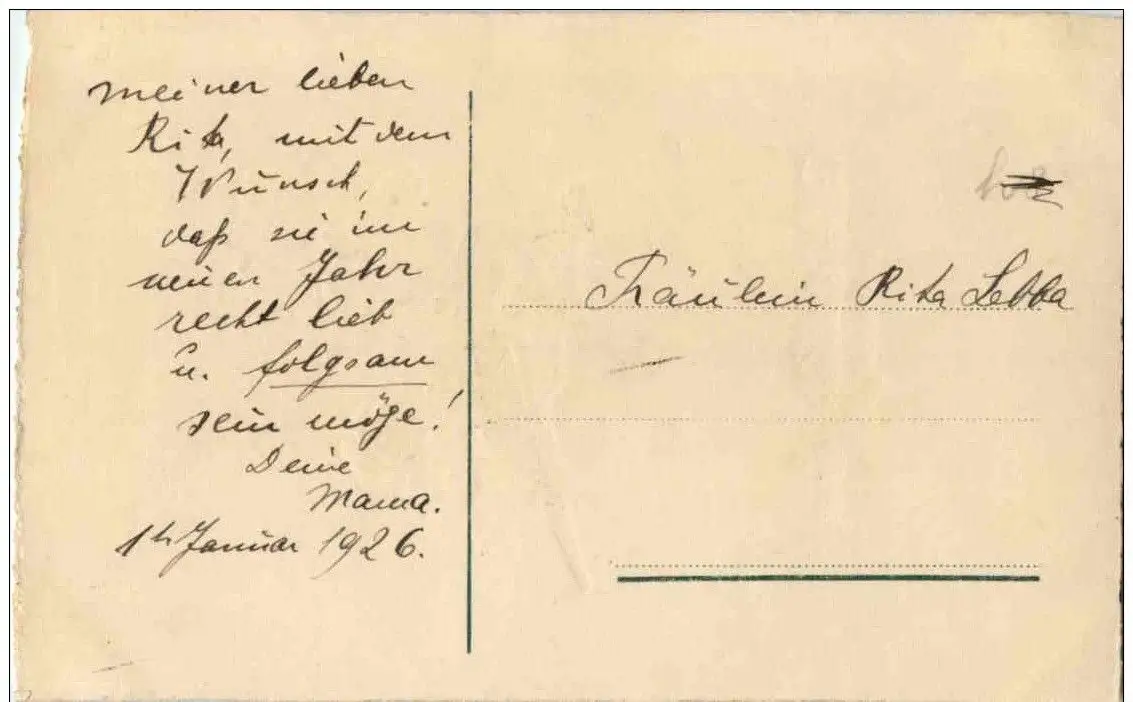 Meiner lieben
Rita, mit dem
Wunsch,
daß sie im
neuen Jahr
recht lieb
u. folgsam
sein möge!
Deine
Mama.
1ten Januar 1926.
Fräulein Rita Lebba